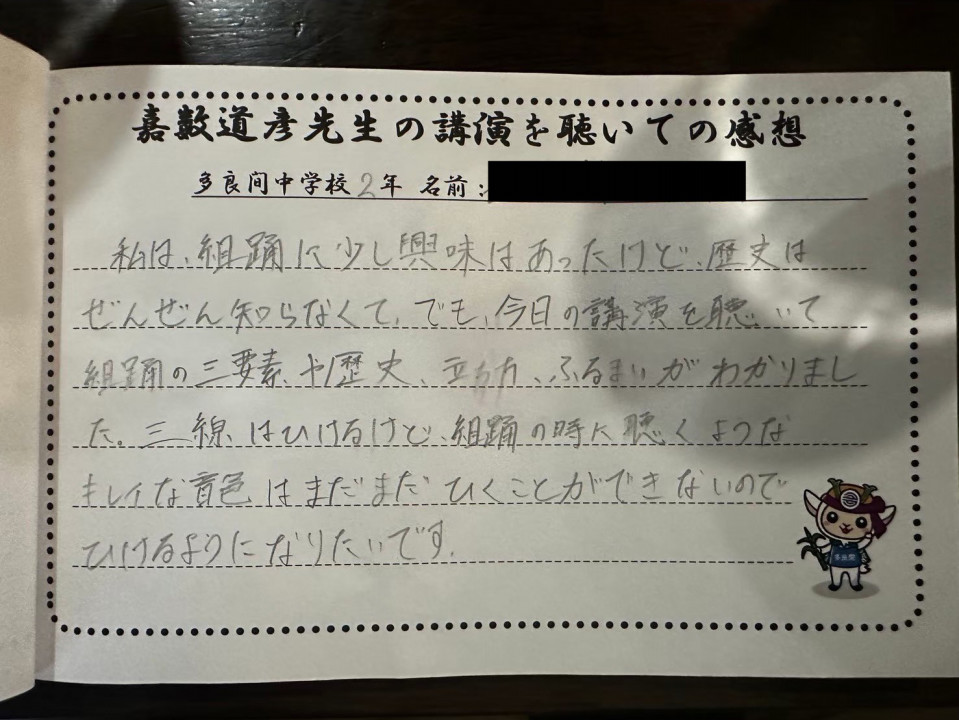 嘉数道彦先生の講演を聴いての感想
多良間中学校2年 名前:
私は、組踊に少し興味はあったけど、歴史は
ぜんぜん知らなくて、でも、今日の講演を聴いて
組踊の三要素、や歴史、立ち方、ふるまいがわかりまし
た。三線はひけるけど、組踊の時に聴くような
キレイな音色はまだまだひくことができないので
ひけるようになりたいです。